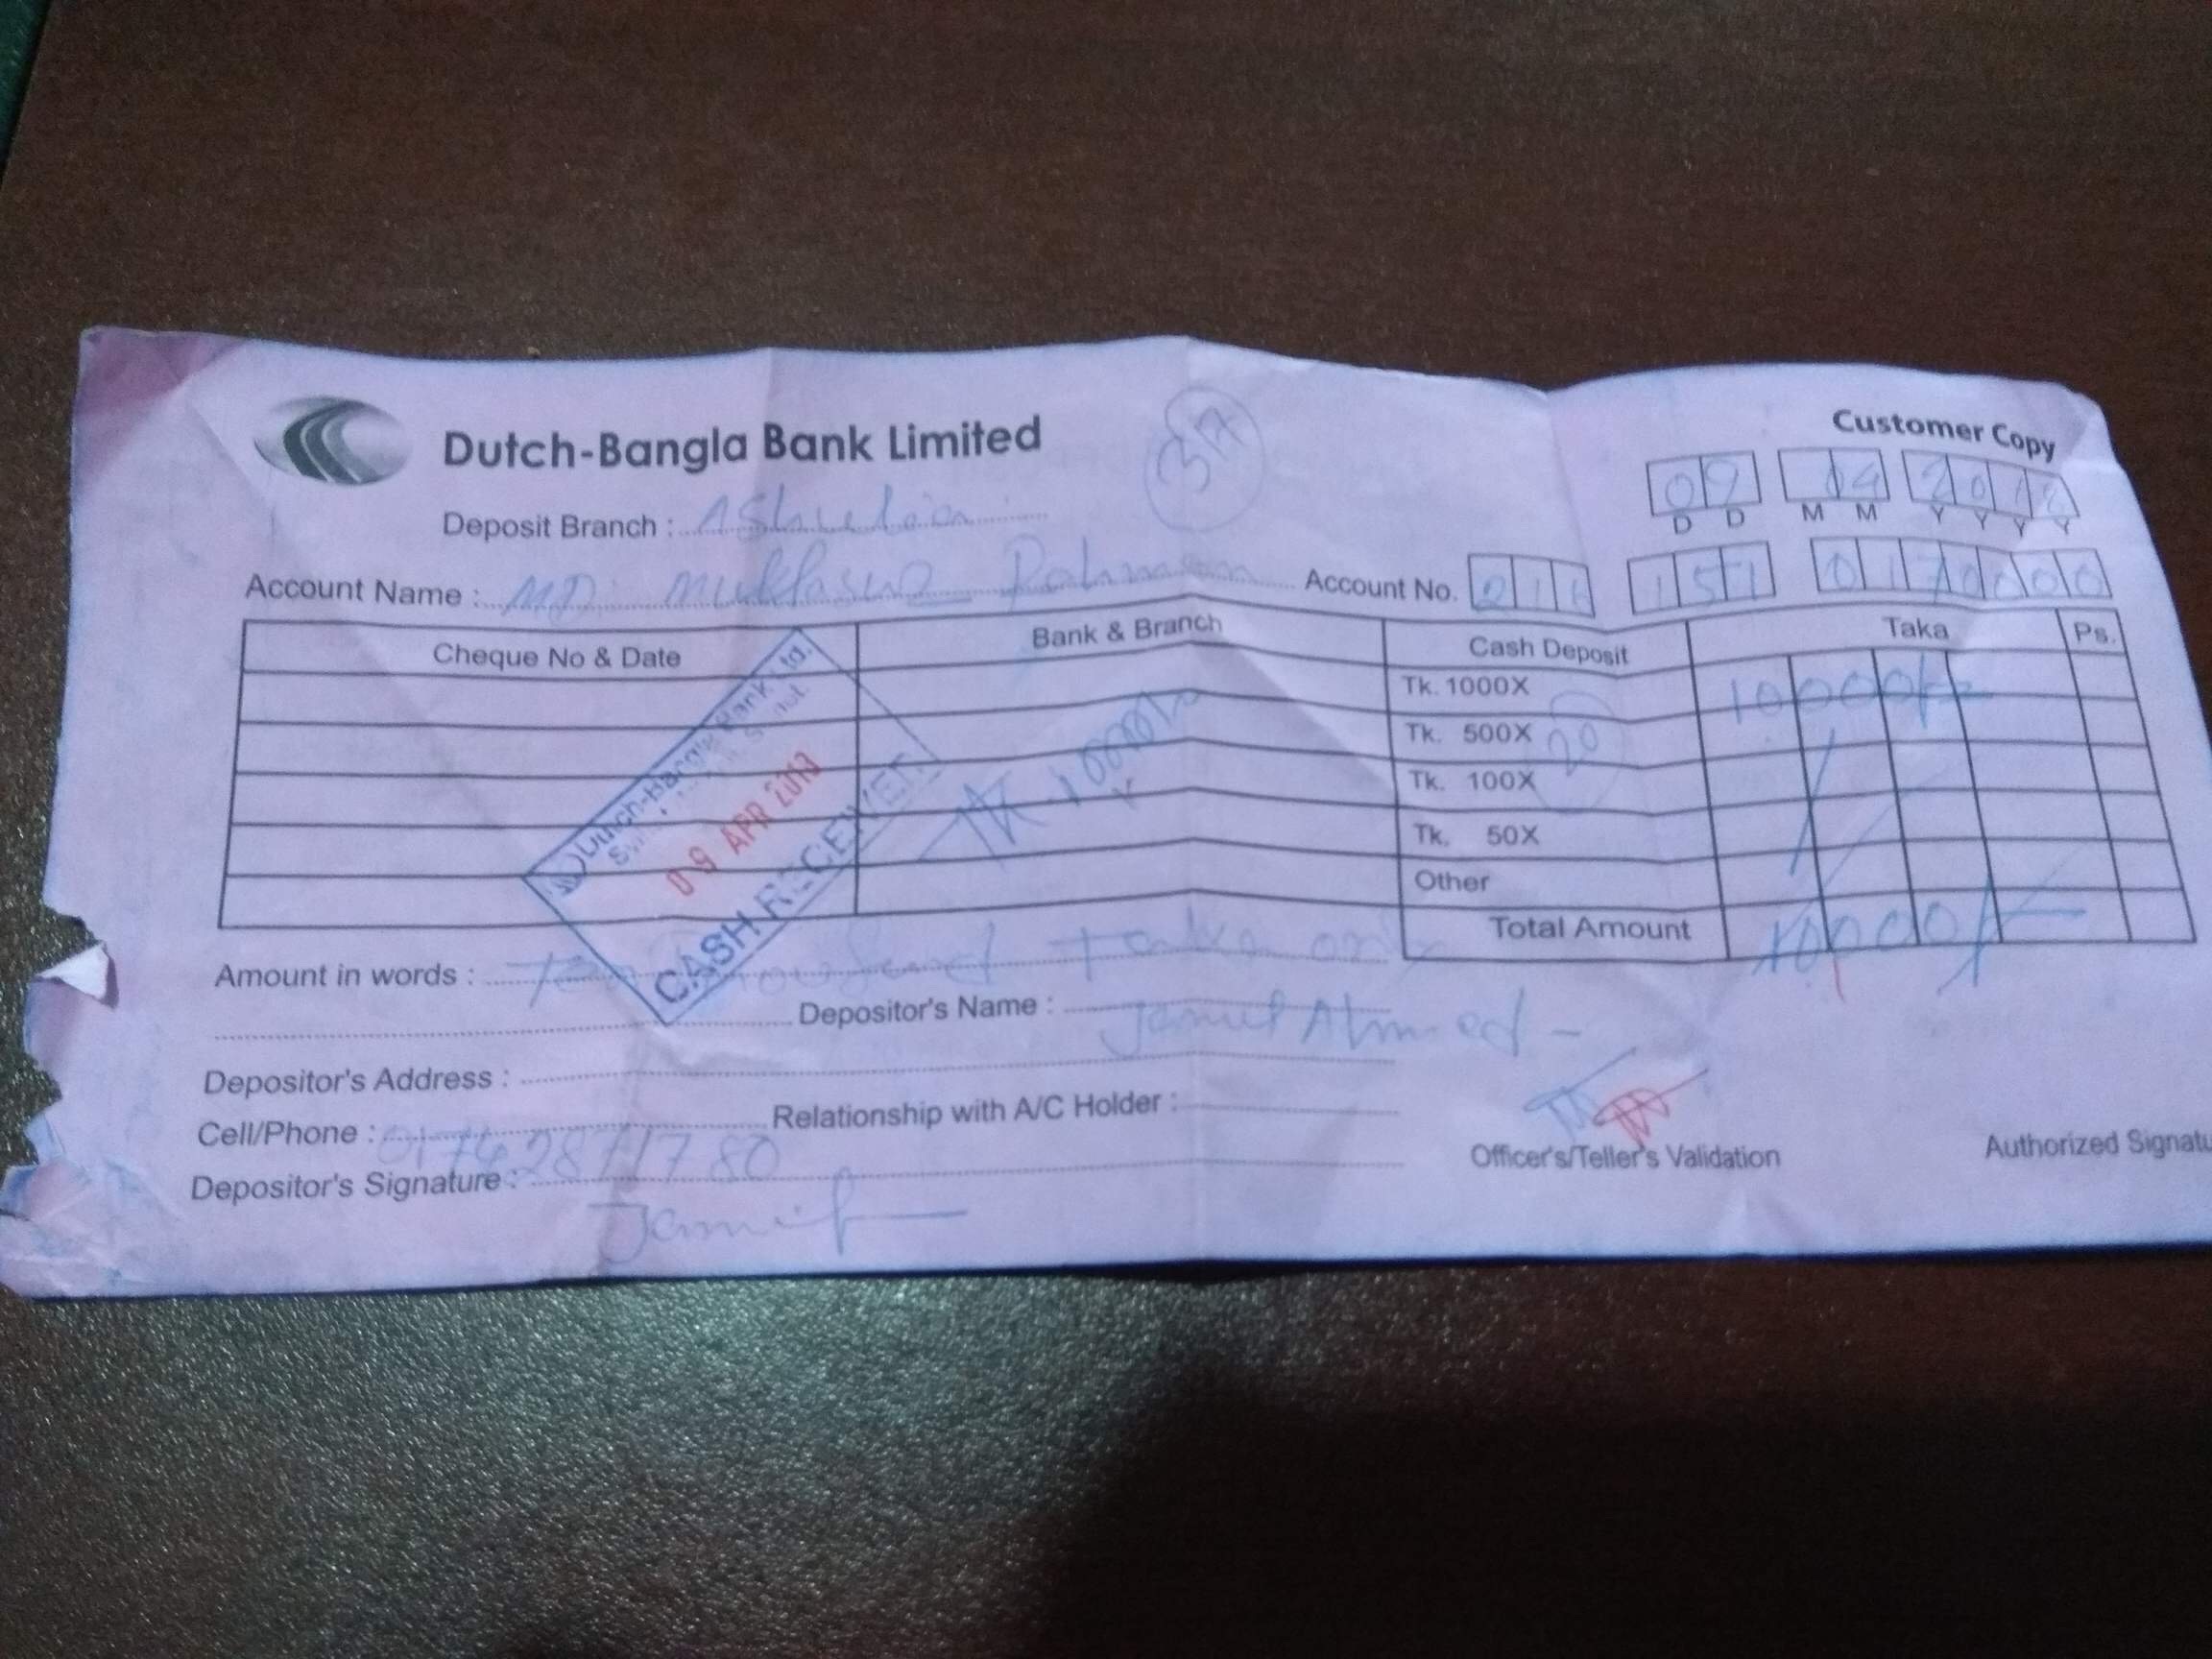 Customer Copy
Dutch-Bangla Bank Limited
09 04
D D M M Y Y Y Y
Deposit Branch : Ashulia
Account Name : MD. Rahman Account No. 151 0170000
Cheque No & Date Bank & Branch Cash Deposit Taka Ps.
Tk. 1000X 10000/=
Tk. 500X 20
Tk. 100X
Tk. 50X
Other
Total Amount 10000/=
Dutch-Bangla Bank Ltd.
09 APR 2013
CASH RECEIVED
TK 10000/=
Amount in words : Ten Thousand Taka only
Depositor's Name : Jamil Ahmed
Depositor's Address :
Cell/Phone : Relationship with A/C Holder :
Depositor's Signature : Jamil
Officer's/Teller's Validation
Authorized Signatu